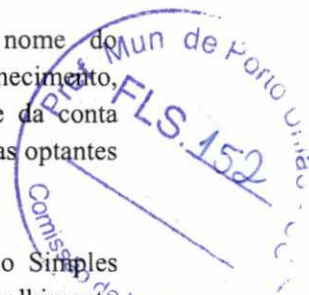 nome do
hecimento,
e da conta
as optantes
o Simples
Pref. Mun de Porto União
FLS. 152
Comissão de